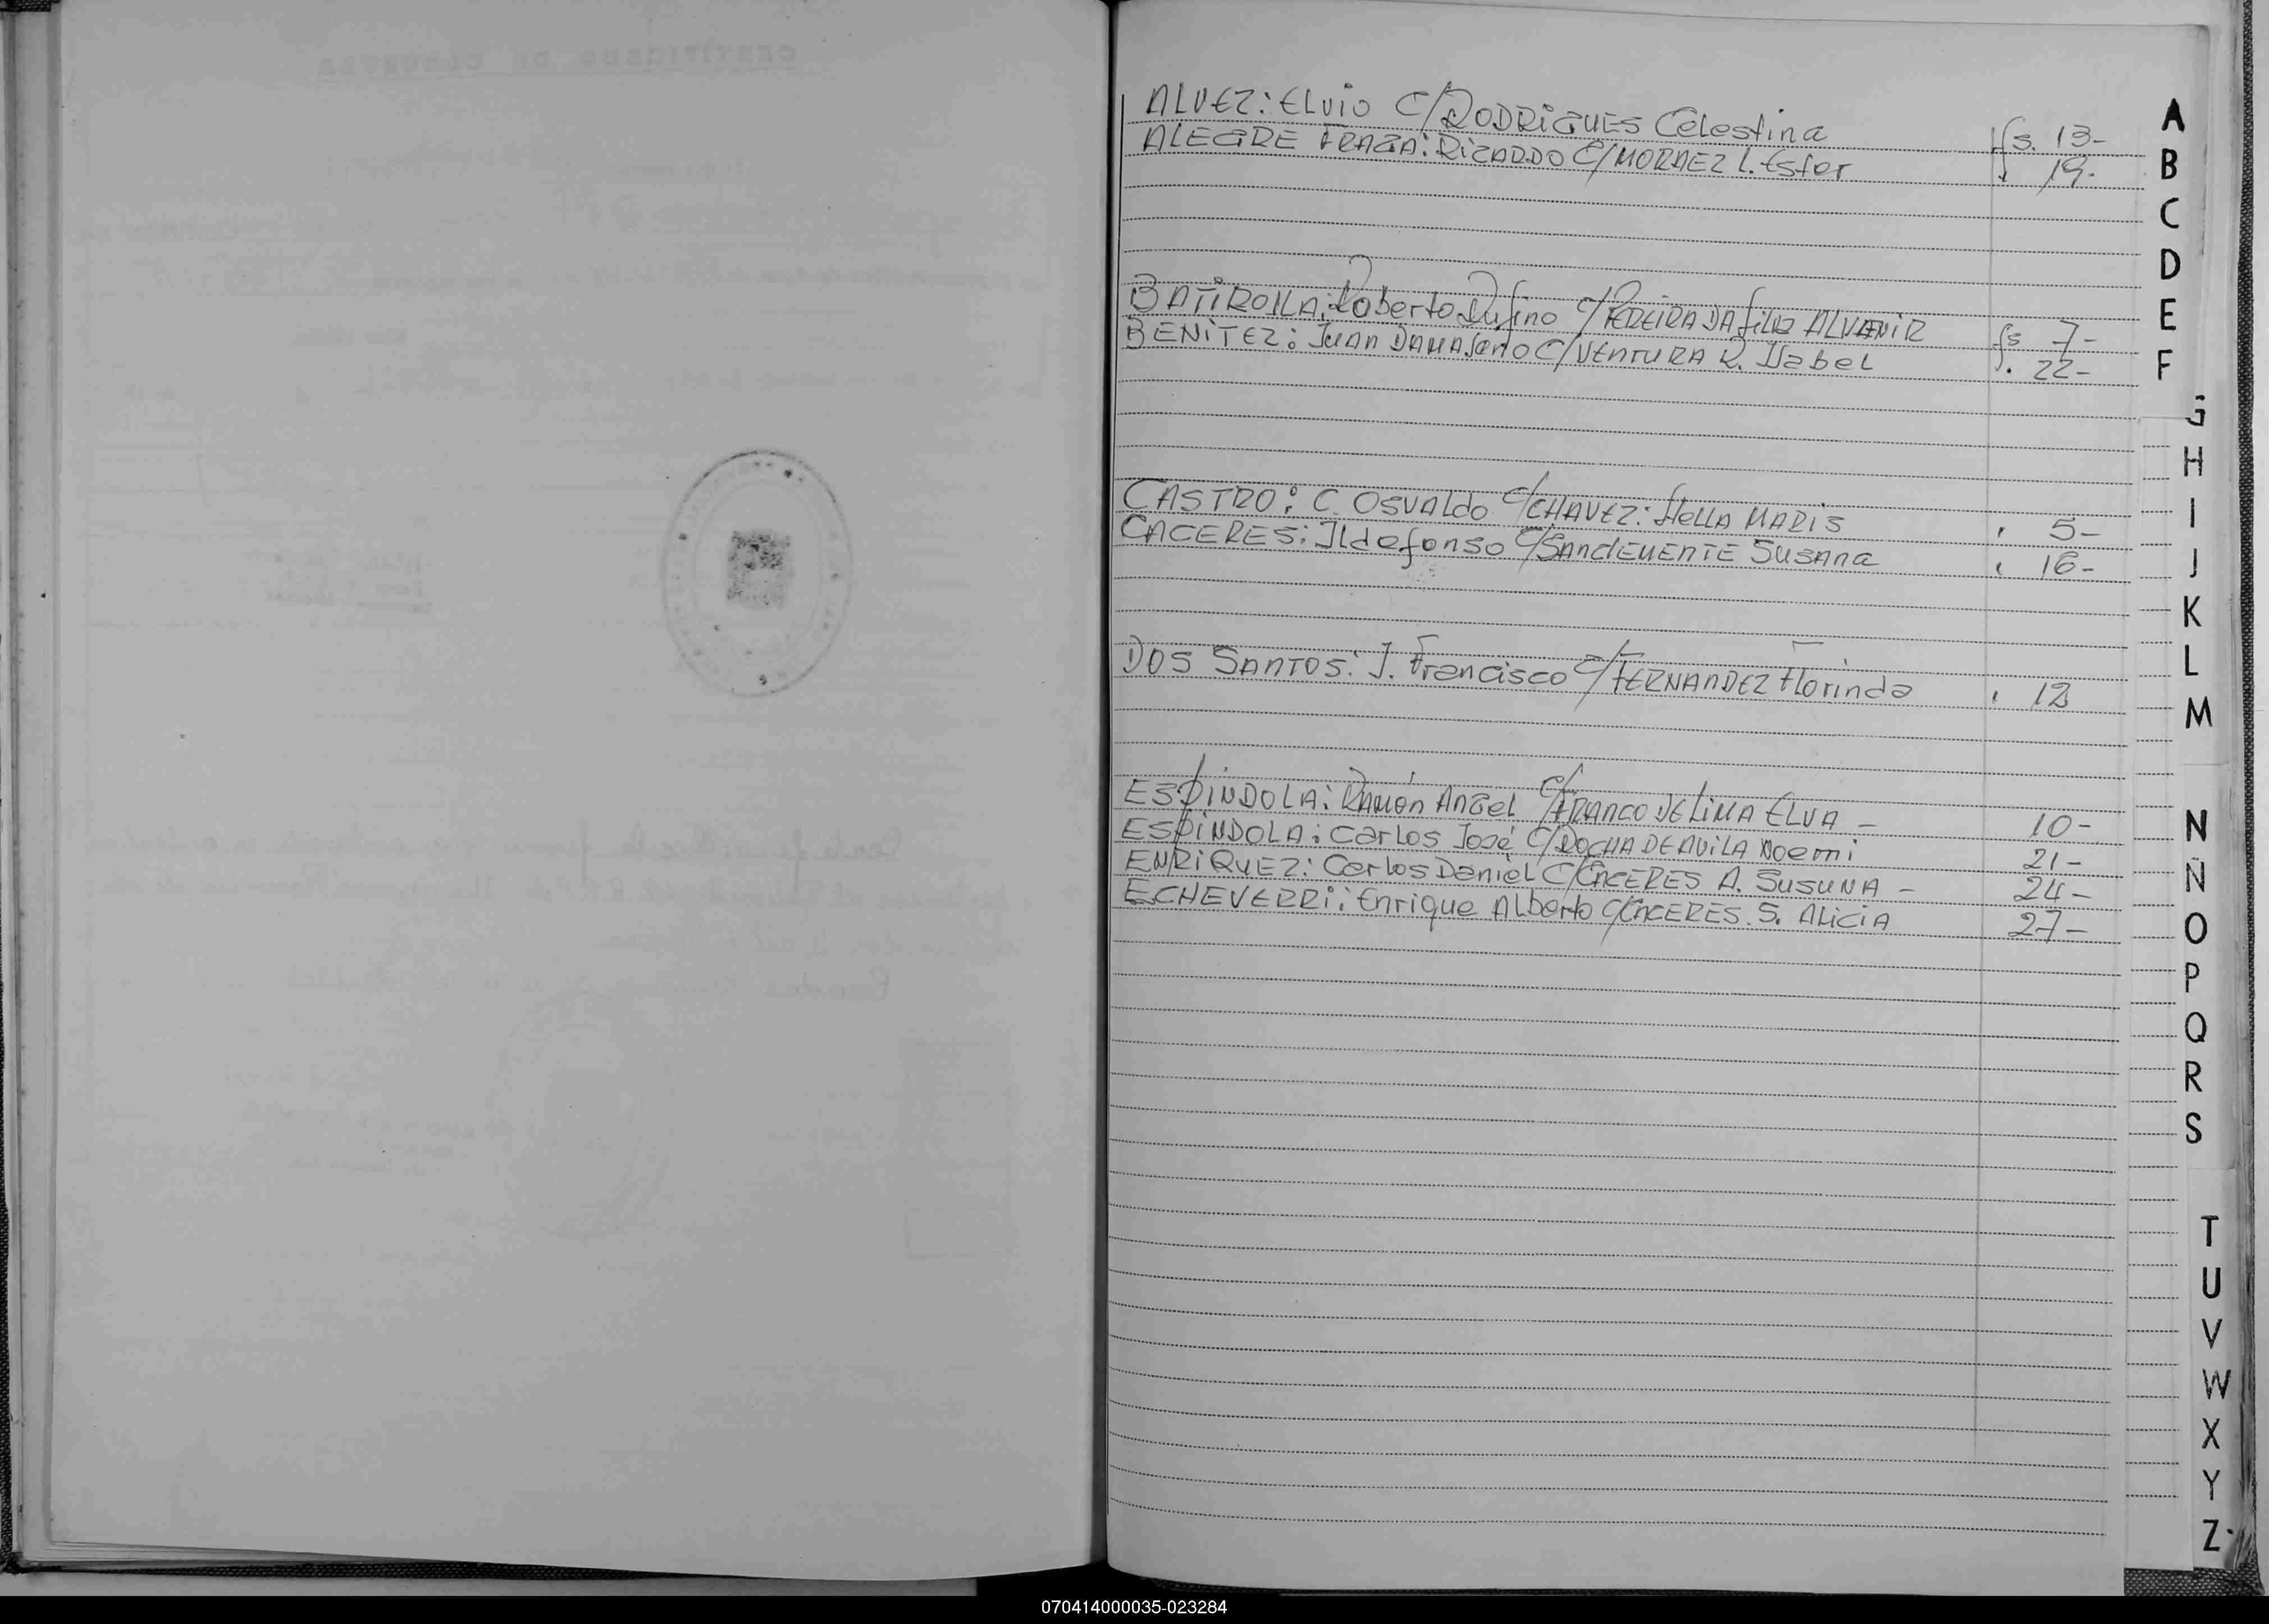 ALVEZ: ELVIO C/RODRIGUES Celestina fs. 13-
ALEGRE FRAGA: RICARDO C/MORAEZ L. Ester 19-
Roberto Rufino C/PEREIRA DA SILVA ALVENIR fs 7-
BENITEZ: JUAN DAMASENO C/VENTURA R. ISabel 22-
CASTRO: C. OSVALDO C/CHAVEZ: Stella MARIS 5-
CACERES: Ildefonso C/SANCLEMENTE SUSANA 16-
DOS SANTOS: J. Francisco C/FERNANDEZ Florinda 12
ESPINDOLA: RAMÓN ANGEL C/FRANCO DE LIMA ELVA - 10-
ESPINDOLA: CARLOS José C/ROCHA DE AVILA Noemi 21-
ENRIQUEZ: Carlos Daniel C/CACERES A. SUSUNA - 24-
ECHEVERRI: Enrique ALberto C/CACERES. S. ALICIA 27-
A
B
C
D
E
F
G
H
I
J
K
L
M
N
Ñ
O
P
Q
R
S
T
U
V
W
X
Y
Z
070414000035-023284